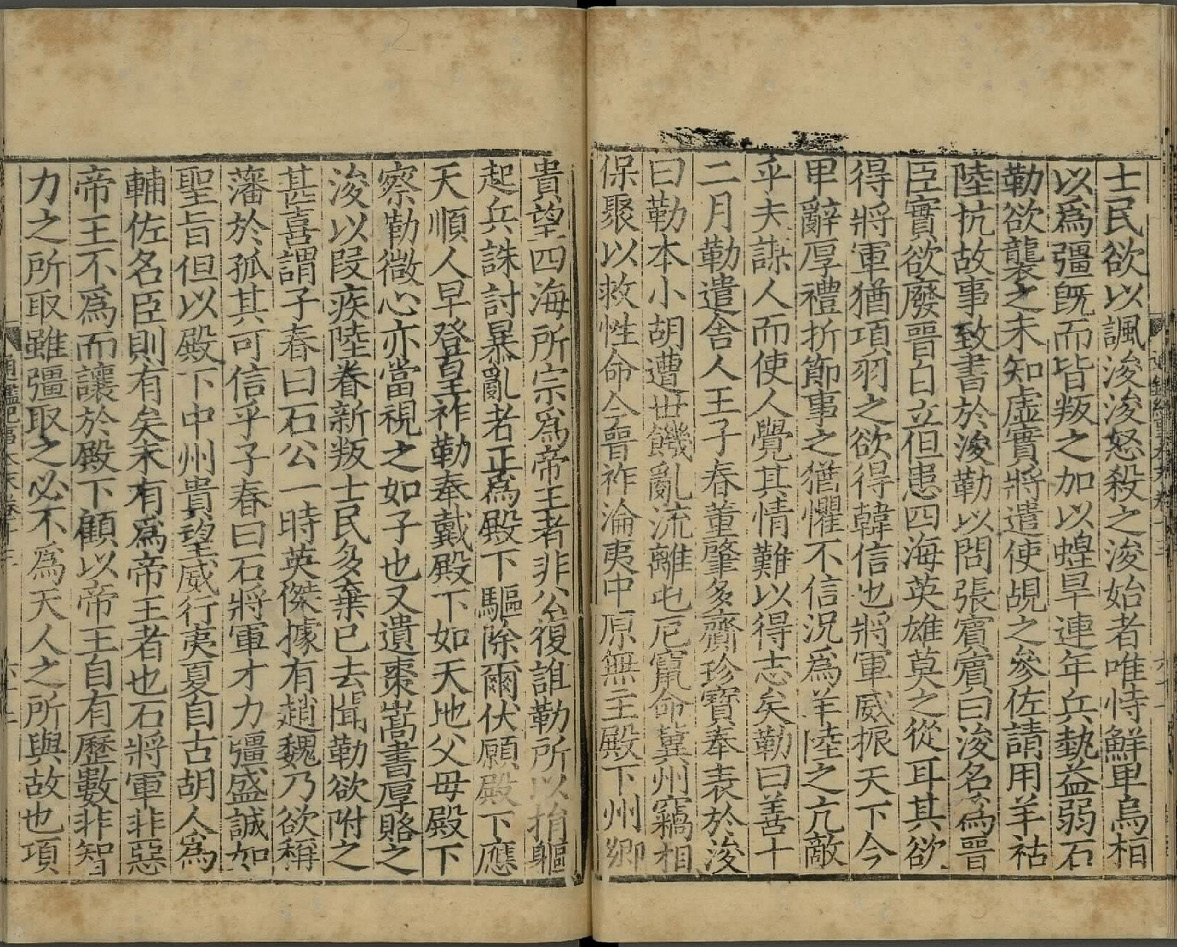 士民欲以諷浚浚怒殺之浚始者唯恃鮮卑烏桓
以爲彊旣而皆叛之加以蝗旱連年兵埶益弱石
勒欲襲之未知虛實將遣使覘之參佐請用羊祜
陸抗故事致書於浚勒以問張賓賓曰浚名爲晉
臣實欲廢晉自立但患四海英雄莫之從耳其欲
得將軍猶項羽之欲得韓信也將軍威振天下今
卑辭厚禮折節事之猶懼不信況爲羊陸之亢敵
乎夫謀人而使人覺其情難以得志矣勒曰善十
二月勒遣舍人王子春董肇多齎珍寶奉表於浚
曰勒本小胡遭世饑亂流離屯厄竄命冀州竊相
保聚以救性命今晉祚淪夷中原無主殿下州鄉
貴望四海所宗爲帝王者非公復誰勒所以捐軀
起兵誅討暴亂者正爲殿下驅除爾伏願殿下應
天順人早登皇祚勒奉戴殿下如天地父母殿下
察勒微心亦當視之如子也又遺棗嵩書厚賂之
浚以段疾陸眷新叛士民多棄已去聞勒欲附之
甚喜謂子春曰石公一時英傑據有趙魏乃欲稱
藩於孤其可信乎子春曰石將軍才力彊盛誠如
聖旨但以殿下中州貴望威行夷夏自古胡人爲
輔佐名臣則有矣未有爲帝王者也石將軍非惡
帝王不爲而讓於殿下顧以帝王自有歷數非智
力之所取雖彊取之必不爲天人之所與故也項
通鑑紀事本末卷十三